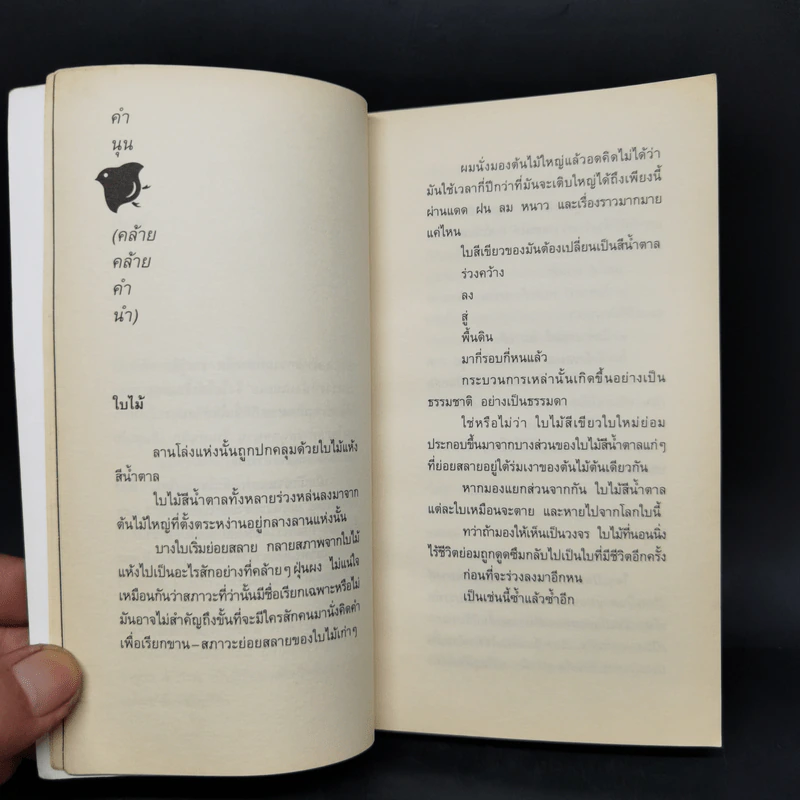 คำ
นุน
(คล้าย
คล้าย
คำ
นำ)
ใบไม้
ลานโล่งแห่งนั้นถูกปกคลุมด้วยใบไม้แห้ง
สีน้ำตาล
ใบไม้สีน้ำตาลทั้งหลายร่วงหล่นลงมาจาก
ต้นไม้ใหญ่ที่ตั้งตระหง่านอยู่กลางลานแห่งนั้น
บางใบเริ่มย่อยสลาย กลายสภาพจากใบไม้
แห้งไปเป็นอะไรสักอย่างที่คล้ายๆ ฝุ่นผง ไม่แน่ใจ
เหมือนกันว่าสภาวะที่ว่านั้นมีชื่อเรียกเฉพาะหรือไม่
มันอาจไม่สำคัญถึงขั้นที่จะมีใครสักคนมานั่งคิดคำ
เพื่อเรียกขาน–สภาวะย่อยสลายของใบไม้เก่าๆ
ผมนั่งมองต้นไม้ใหญ่แล้วอดคิดไม่ได้ว่า
มันใช้เวลากี่ปีกว่าที่มันจะเติบใหญ่ได้ถึงเพียงนี้
ผ่านแดด ฝน ลม หนาว และเรื่องราวมากมาย
แค่ไหน
ใบสีเขียวของมันต้องเปลี่ยนเป็นสีน้ำตาล
ร่วงคว้าง
ลง
สู่
พื้นดิน
มากี่รอบกี่หนแล้ว
กระบวนการเหล่านั้นเกิดขึ้นอย่างเป็น
ธรรมชาติ อย่างเป็นธรรมดา
ใช่หรือไม่ว่า ใบไม้สีเขียวใบใหม่ย่อม
ประกอบขึ้นมาจากบางส่วนของใบไม้สีน้ำตาลแก่ๆ
ที่ย่อยสลายอยู่ใต้ร่มเงาของต้นไม้ต้นเดียวกัน
หากมองแยกส่วนจากกัน ใบไม้สีน้ำตาล
แต่ละใบเหมือนจะตาย และหายไปจากโลกใบนี้
ทว่าถ้ามองให้เห็นเป็นวงจร ใบไม้ที่นอนนิ่ง
ไร้ชีวิตย่อมถูกดูดซึมกลับไปเป็นใบที่มีชีวิตอีกครั้ง
ก่อนที่จะร่วงลงมาอีกหน
เป็นเช่นนี้ซ้ำแล้วซ้ำอีก